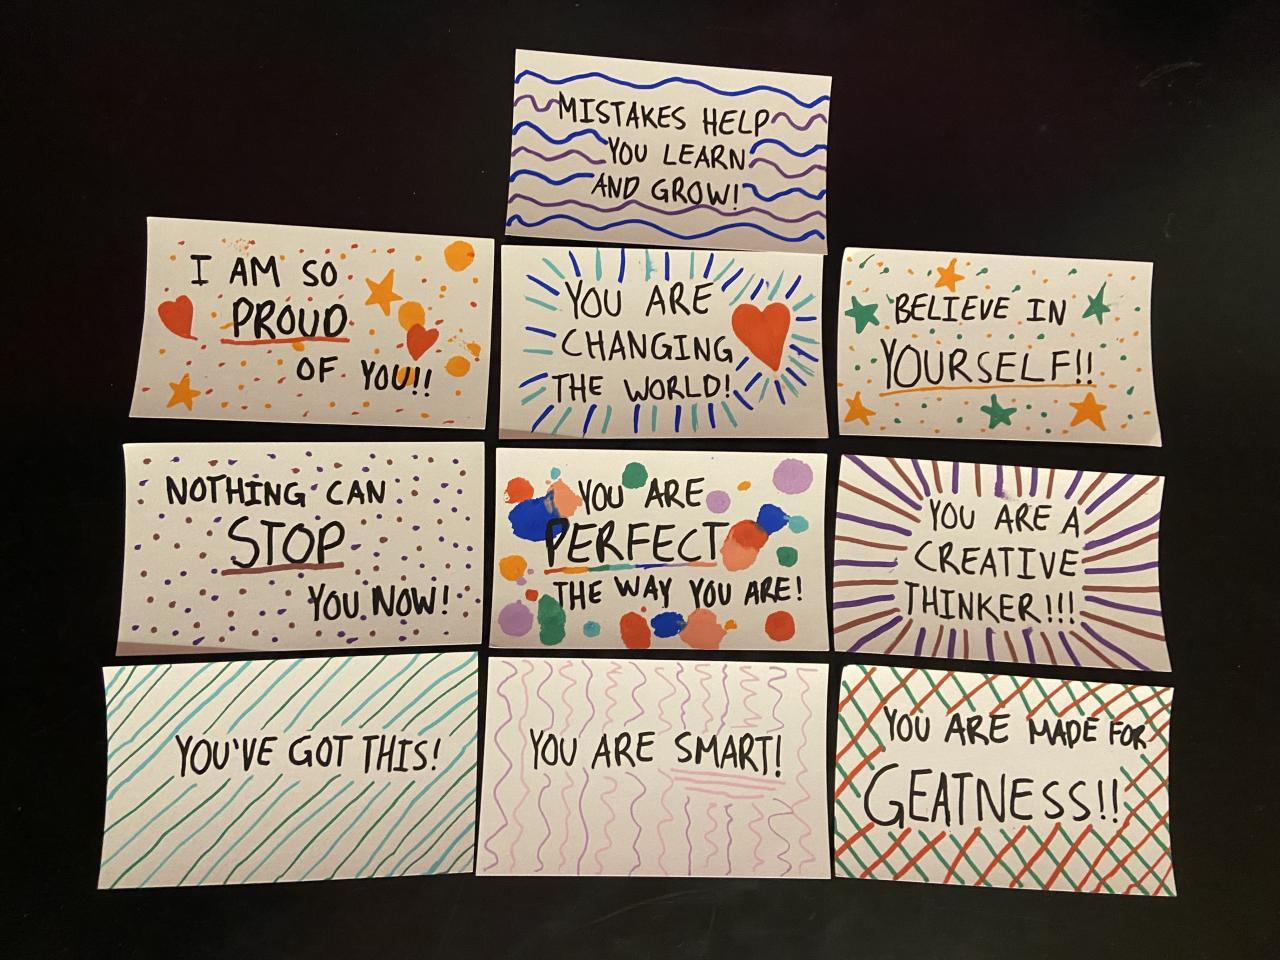 MISTAKES HELP
YOU LEARN
AND GROW!
I AM SO
PROUD
OF YOU!!
YOU ARE
CHANGING
THE WORLD!
BELIEVE IN
YOURSELF!!
NOTHING CAN
STOP
YOU NOW!
YOU ARE
PERFECT
THE WAY YOU ARE!
YOU ARE A
CREATIVE
THINKER!!!
YOU'VE GOT THIS!
YOU ARE SMART!
YOU ARE MADE FOR
GEATNESS!!